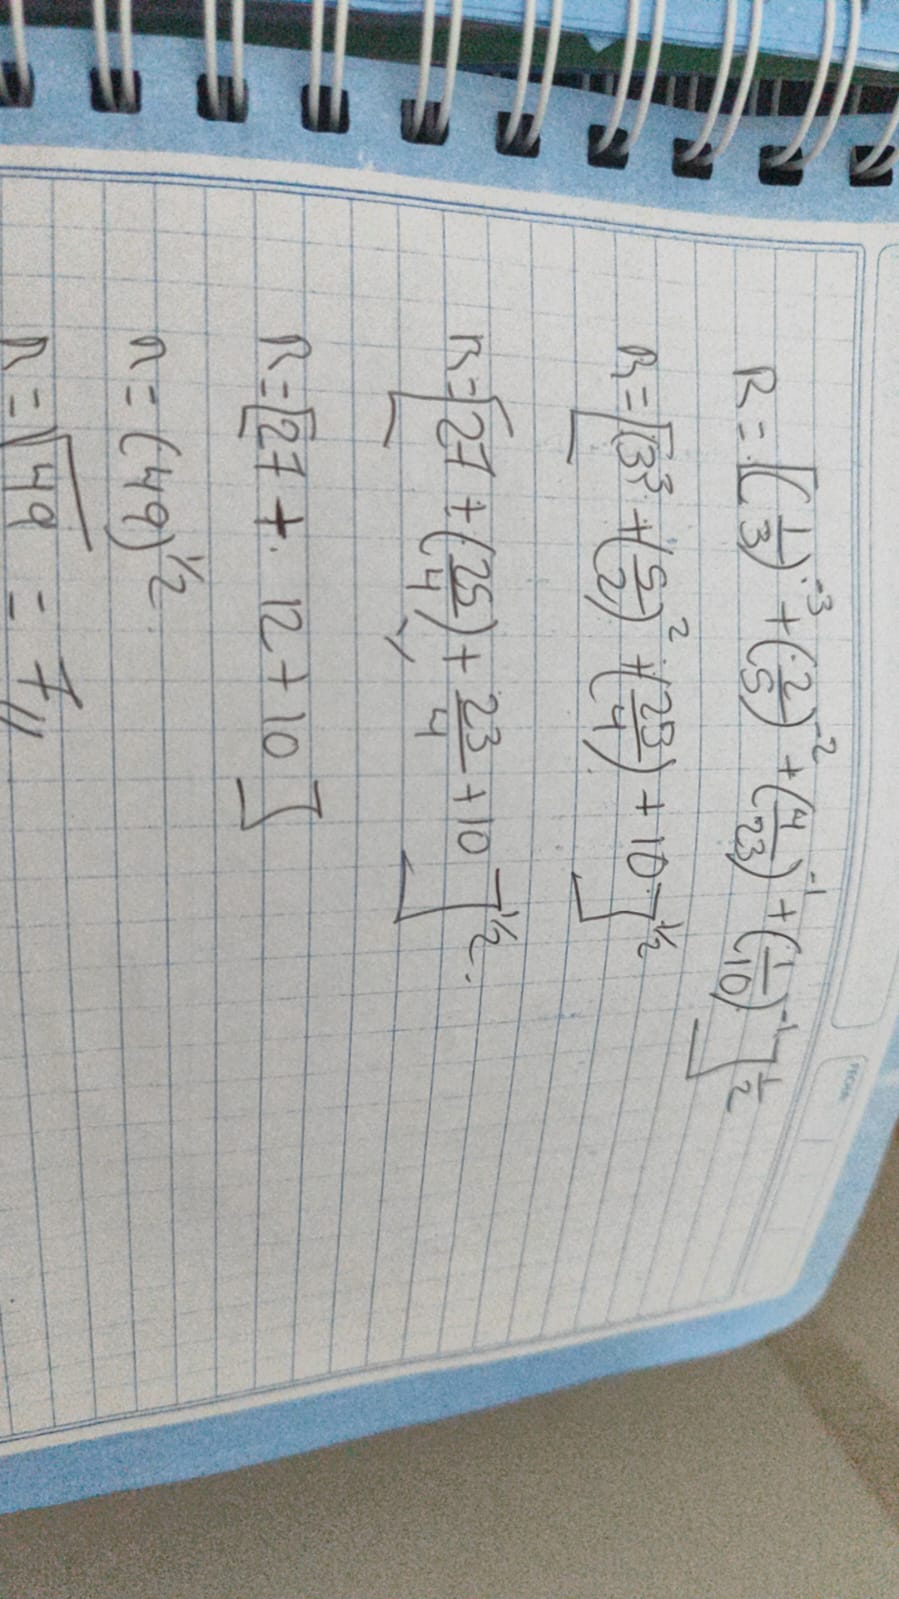 FECHA:
R = [(1/3)^-3 + (2/5)^-2 + (4/23)^-1 + (1/10)^-1]^1/2
R = [(3)^3 + (5/2)^2 + (23/4) + 10]^1/2
R = [27 + (25/4) + 23/4 + 10]^1/2.
R = [27 + 12 + 10]
R = (49)^1/2
R = √49 = 7//